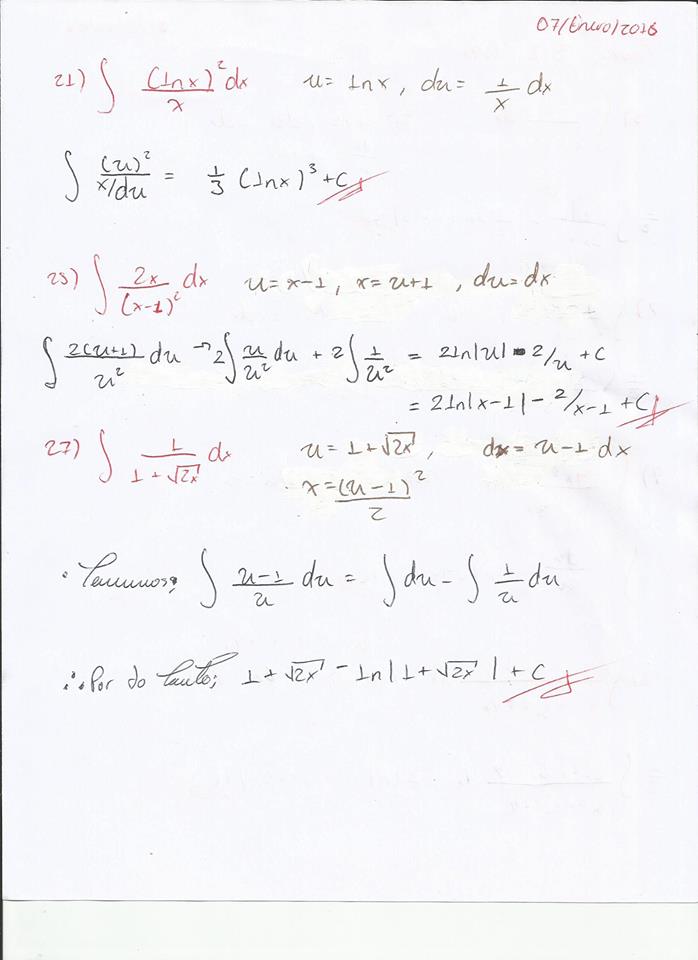 07/Enero/2016
21) ∫ (lnx)²dx / x   u= lnx, du= 1/x dx
∫ (u)² / x/du = 1/3 (lnx)³ +C
25) ∫ 2x/(x-1)² dx   u=x-1, x=u+1, du=dx
∫ 2(u+1)/u² du → 2∫ u/u² du + 2∫ 1/u² = 2ln|u| - 2/u +C
= 2ln|x-1| - 2/x-1 +C
27) ∫ 1/1+√2x dx   u= 1+√2x, dx= u-1 dx
x=(u-1)²/2
∫ u-1/u du = ∫du - ∫ 1/u du
∴ Por lo tanto; 1+√2x - ln|1+√2x| + C